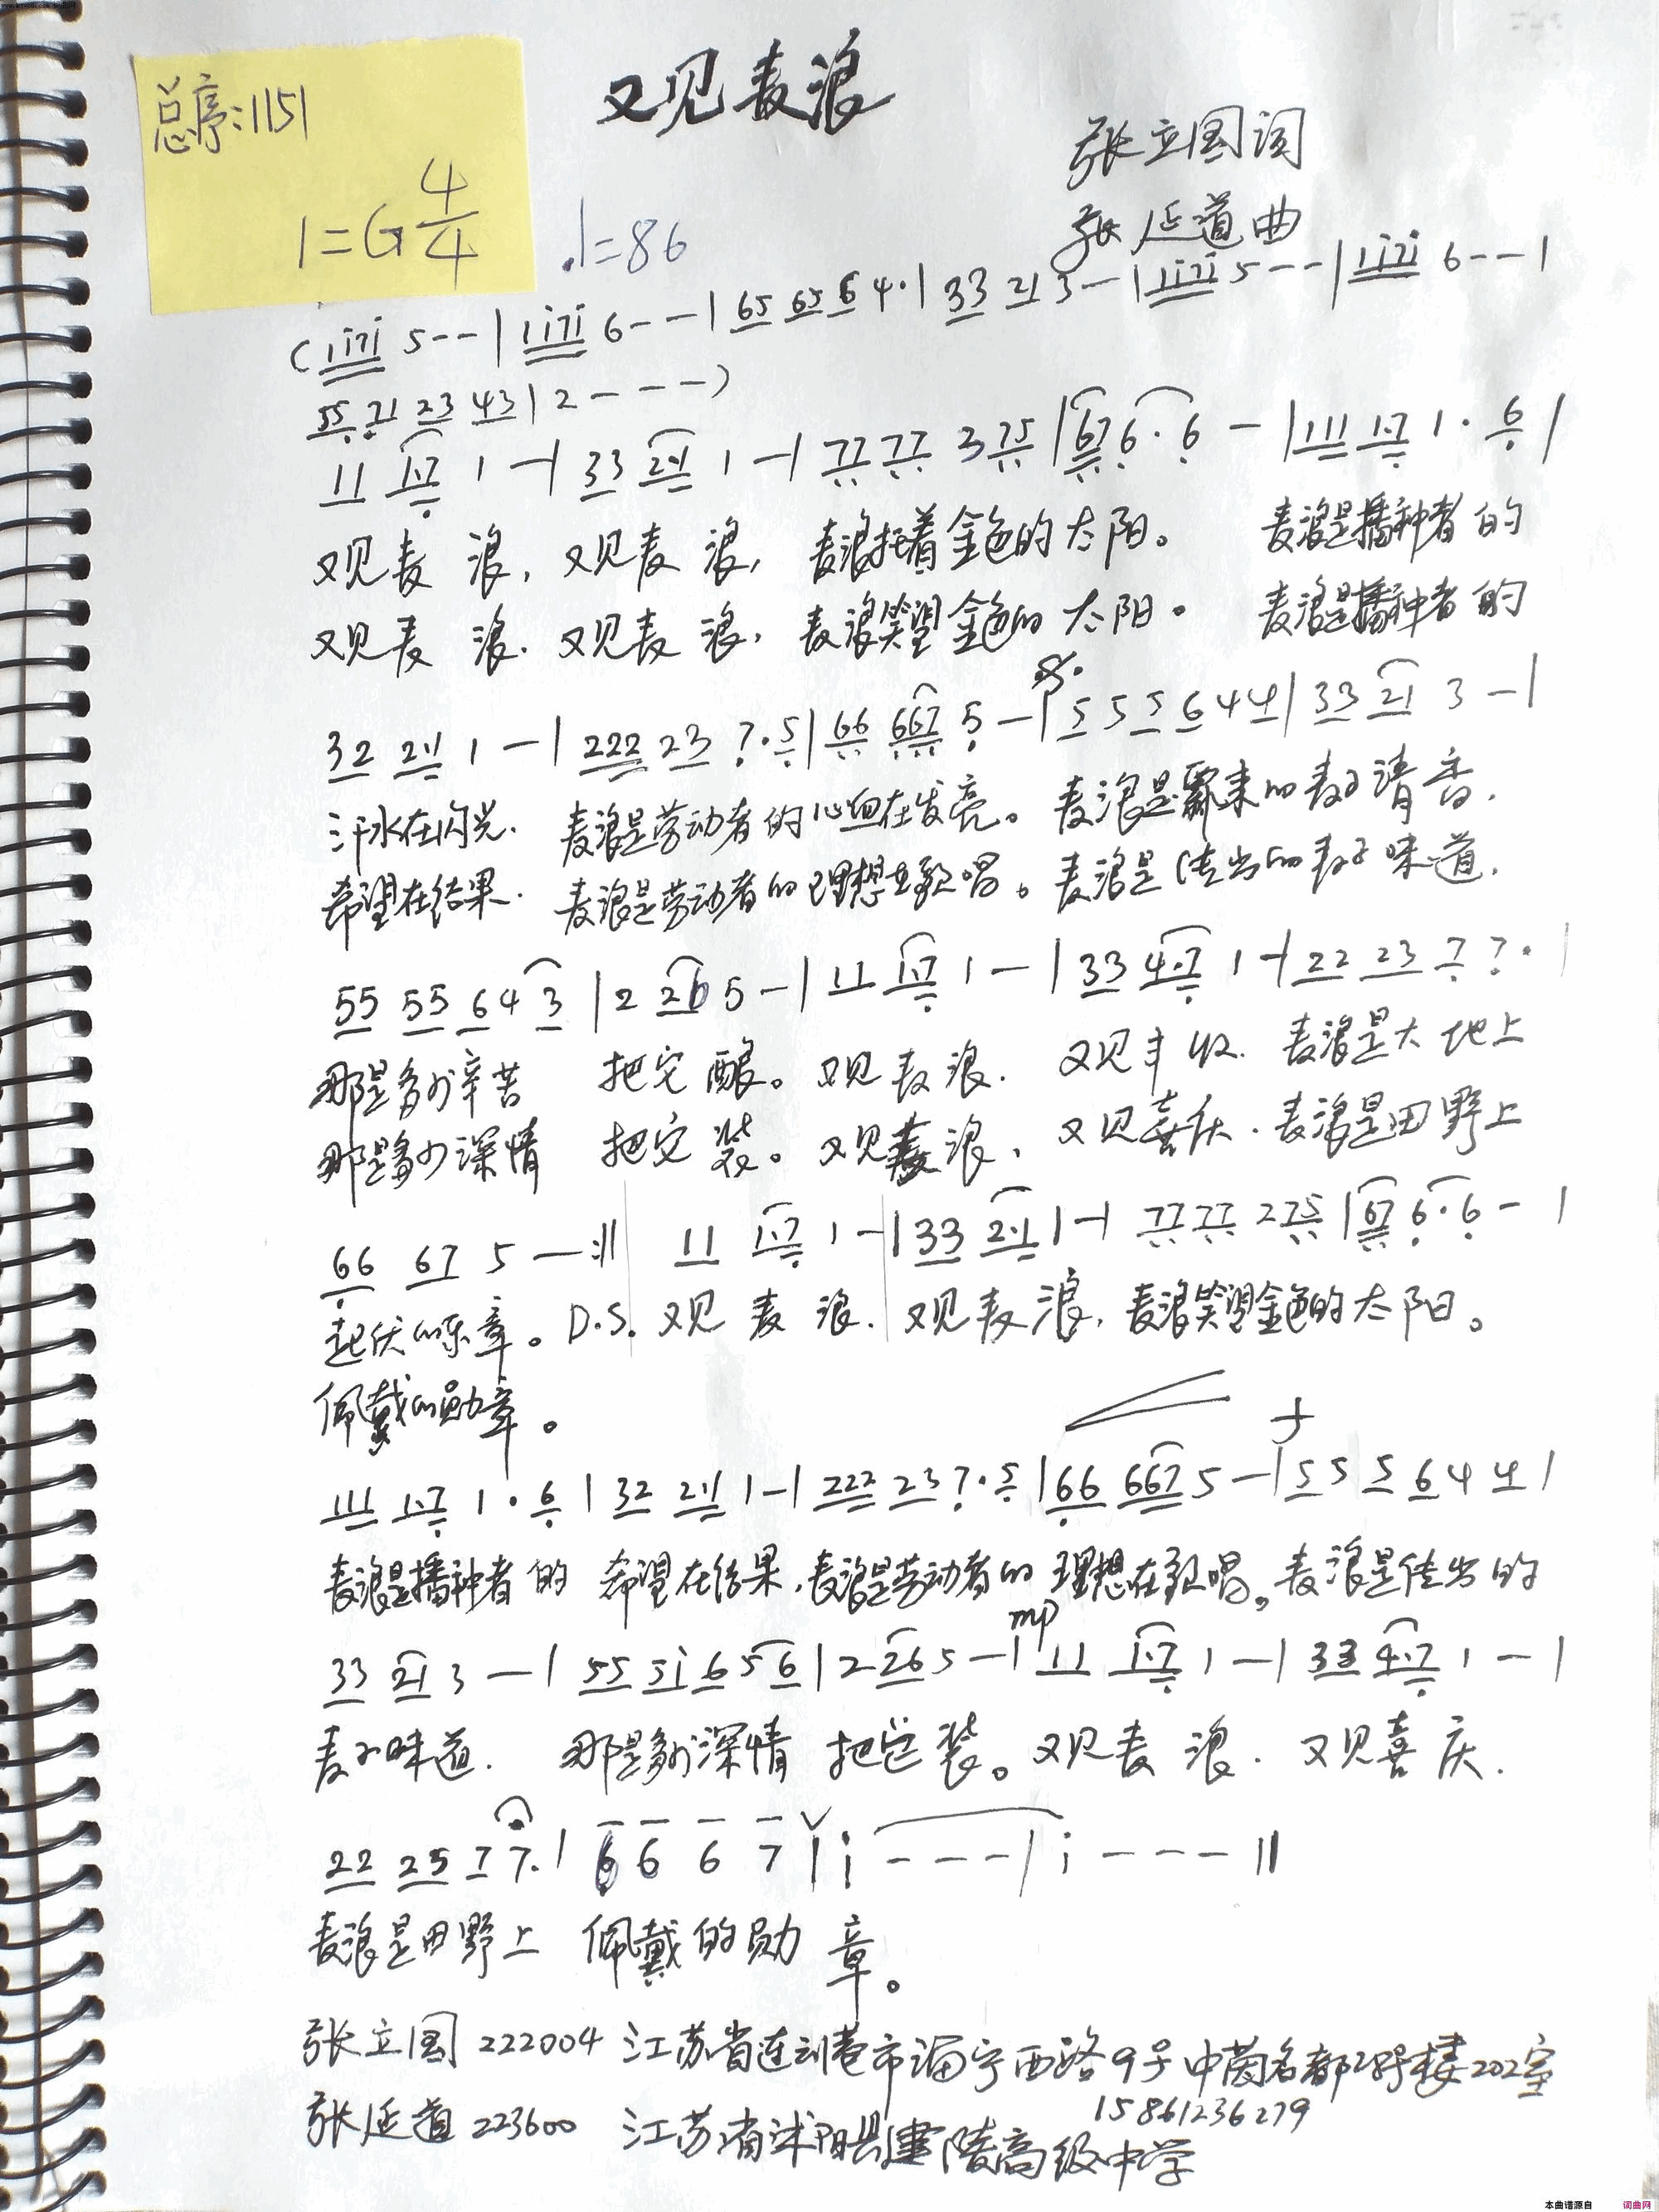 又见麦浪
总序:1151
1=G 4/4 ♩=86
张立国词
张延道曲
(11̇71̇ 5--|11̇71̇ 6--|65 65 6 4·|33 21 3-|11̇71̇ 5--|11̇71̇ 6--|
55 71 23 43|2---)
11 1·7 1-|33 2·1 1-|77 77 3 75|67 6·6-|111 1·7 1·6|
又见麦 浪,又见麦 浪,麦浪托着金色的太阳。 麦浪是播种者的
又见麦 浪.又见麦 浪,麦浪笑望金色的太阳。 麦浪是播种者的
32 2·1 1-|222 23 7·5|66 667 5-|5 5 5 6 4 4|33 21 3-|
汗水在闪光. 麦浪是劳动者的心血在发亮。麦浪是飘来的麦子清香.
希望在结果. 麦浪是劳动者的理想在歌唱。麦浪是传出的麦子味道.
55 55 6 4 3|2 26 5-|11 1·7 1-|33 4·7 1-|22 23 7 7·|
那是多少辛苦 把它酿。又见麦浪. 又见丰收. 麦浪是大地上
那是多少深情 把它装。又见麦浪, 又见喜庆.麦浪是田野上
66 67 5-:‖ 11 1·7 1-|33 2·1 1-|77 77 2 75|67 6·6-|
起伏的乐章。D.S.又见麦浪.又见麦浪,麦浪笑望金色的太阳。
佩戴的勋章。
f
111 1·7 1·6|32 2·1 1-|222 23 7·5|66 667 5-|5 5 5 6 4 4|
麦浪是播种者的 希望在结果,麦浪是劳动者的理想在歌唱。麦浪是传出的
mp
33 21 3-|55 51̇ 6 5 6|2 26 5-|11 1·7 1-|33 4·7 1-|
麦子味道. 那是多少深情 把它装。又见麦浪. 又见喜庆.
22 25 7 7·|6 6 6 7|1̇---|1̇----‖
麦浪是田野上 佩戴的勋 章。
张立国 222004 江苏省连云港市海宁西路9号中茵名都2号楼202室
15861236279
张延道 223600 江苏省沭阳县建陵高级中学
本曲谱源自 词曲网